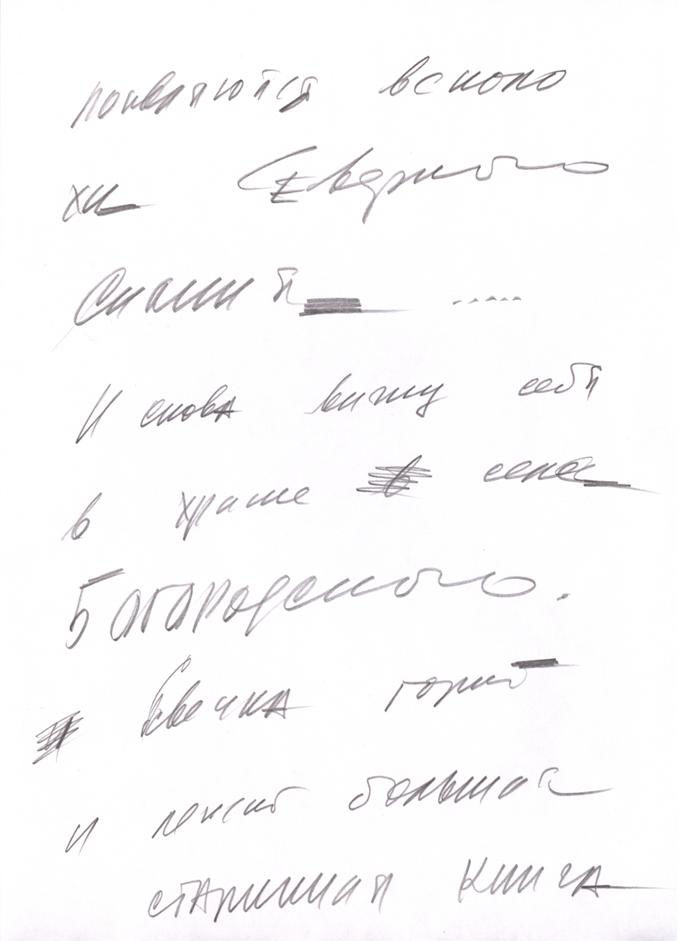 появляются всполо
хи Северного
Сияния .....
И снова вижу себя
в храме села
Богородского.
Свечка горит
и лежит большая
старинная книга